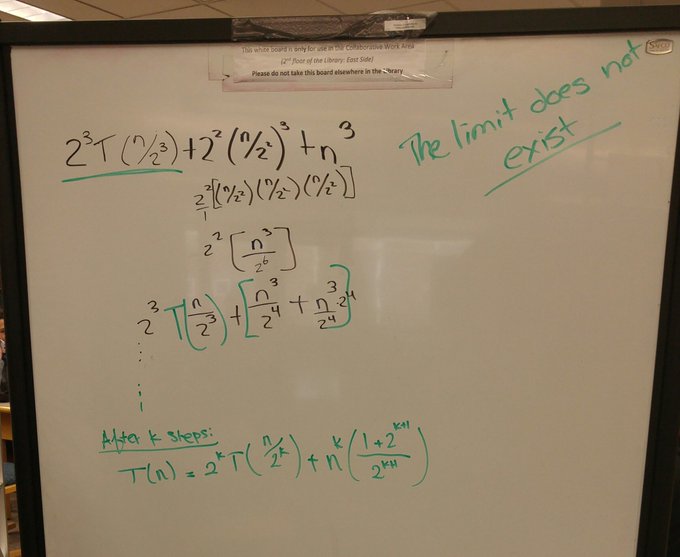 This white board is only for use in the Collaborative Work Area
(2nd floor of the Library: East Side)
Please do not take this board elsewhere in the Library
SAFCO
The limit does not
exist
2³T(n/2³)+2²(n/2²)³+n³
2²/1[(n/2²)(n/2²)(n/2²)]
2²[n³/2⁶]
2³T(n/2³)+[n³/2⁴+n³·2⁴/2⁴]
After k steps:
T(n) = 2ᵏT(n/2ᵏ)+nᵏ(1+2ᵏ⁺¹/2ᵏ⁺¹)